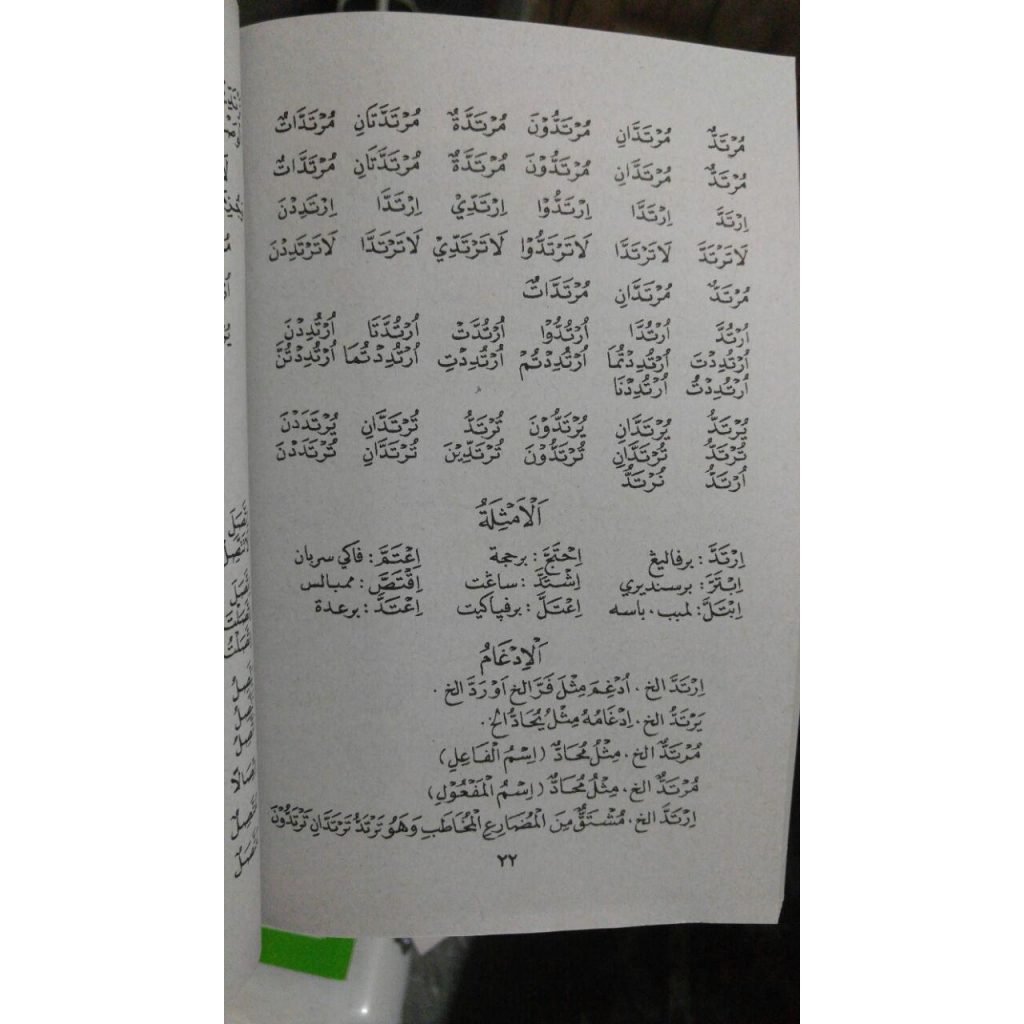 مُرْتَدٌّ مُرْتَدَّانِ مُرْتَدُّوْنَ مُرْتَدَّةٌ مُرْتَدَّتَانِ مُرْتَدَّاتٌ
مُرْتَدٌّ مُرْتَدَّانِ مُرْتَدُّوْنَ مُرْتَدَّةٌ مُرْتَدَّتَانِ مُرْتَدَّاتٌ
اِرْتَدَّ اِرْتَدَّا اِرْتَدُّوْا اِرْتَدِّيْ اِرْتَدَّا اِرْتَدِدْنَ
لَاتَرْتَدَّ لَاتَرْتَدَّا لَاتَرْتَدُّوْا لَاتَرْتَدِّيْ لَاتَرْتَدَّا لَاتَرْتَدِدْنَ
مُرْتَدٌّ مُرْتَدَّانِ مُرْتَدَّاتٌ
اُرْتُدَّ اُرْتُدَّا اُرْتُدُّوْا اُرْتُدَّتْ اُرْتُدَّتَا اُرْتُدِدْنَ
اُرْتُدِدْتَ اُرْتُدِدْتُمَا اُرْتُدِدْتُمْ اُرْتُدِدْتِ اُرْتُدِدْتُمَا اُرْتُدِدْتُنَّ
اُرْتُدِدْتُ اُرْتُدِدْنَا
يُرْتَدُّ يُرْتَدَّانِ يُرْتَدُّوْنَ تُرْتَدُّ تُرْتَدَّانِ يُرْتَدَدْنَ
تُرْتَدُّ تُرْتَدَّانِ تُرْتَدُّوْنَ تُرْتَدِّيْنَ تُرْتَدَّانِ تُرْتَدَدْنَ
اُرْتَدُّ نُرْتَدُّ
اَلْاَمْثِلَةُ
اِرْتَدَّ : برفاليڠ اِحْتَجَّ : برحجة اِعْتَمَّ : فاكي سربان
اِبْتَزَّ : برسنديري اِشْتَدَّ : ساڠت اِقْتَصَّ : ممبالس
اِبْتَلَّ : لمبب ، باسه اِعْتَلَّ : برفياكيت اِعْتَدَّ : برعدة
اَلْاِدْغَامُ
اِرْتَدَّ الخ . اُدْغِمَ مِثْلَ فَرَّ الخ اَوْ رَدَّ الخ .
يَرْتَدُّ الخ . اِدْغَامُهُ مِثْلُ يُحَادُّ الخ .
مُرْتَدٌّ الخ . مِثْلُ مُحَادٌّ (اِسْمُ الْفَاعِلِ)
مُرْتَدٌّ الخ . مِثْلُ مُحَادٌّ (اِسْمُ الْمَفْعُوْلِ)
اِرْتَدَّ الخ . مُشْتَقٌّ مِنَ الْمُضَارِعِ الْمُخَاطَبِ وَهُوَ تَرْتَدُّ تَرْتَدَّانِ تَرْتَدُّوْنَ
٢٢